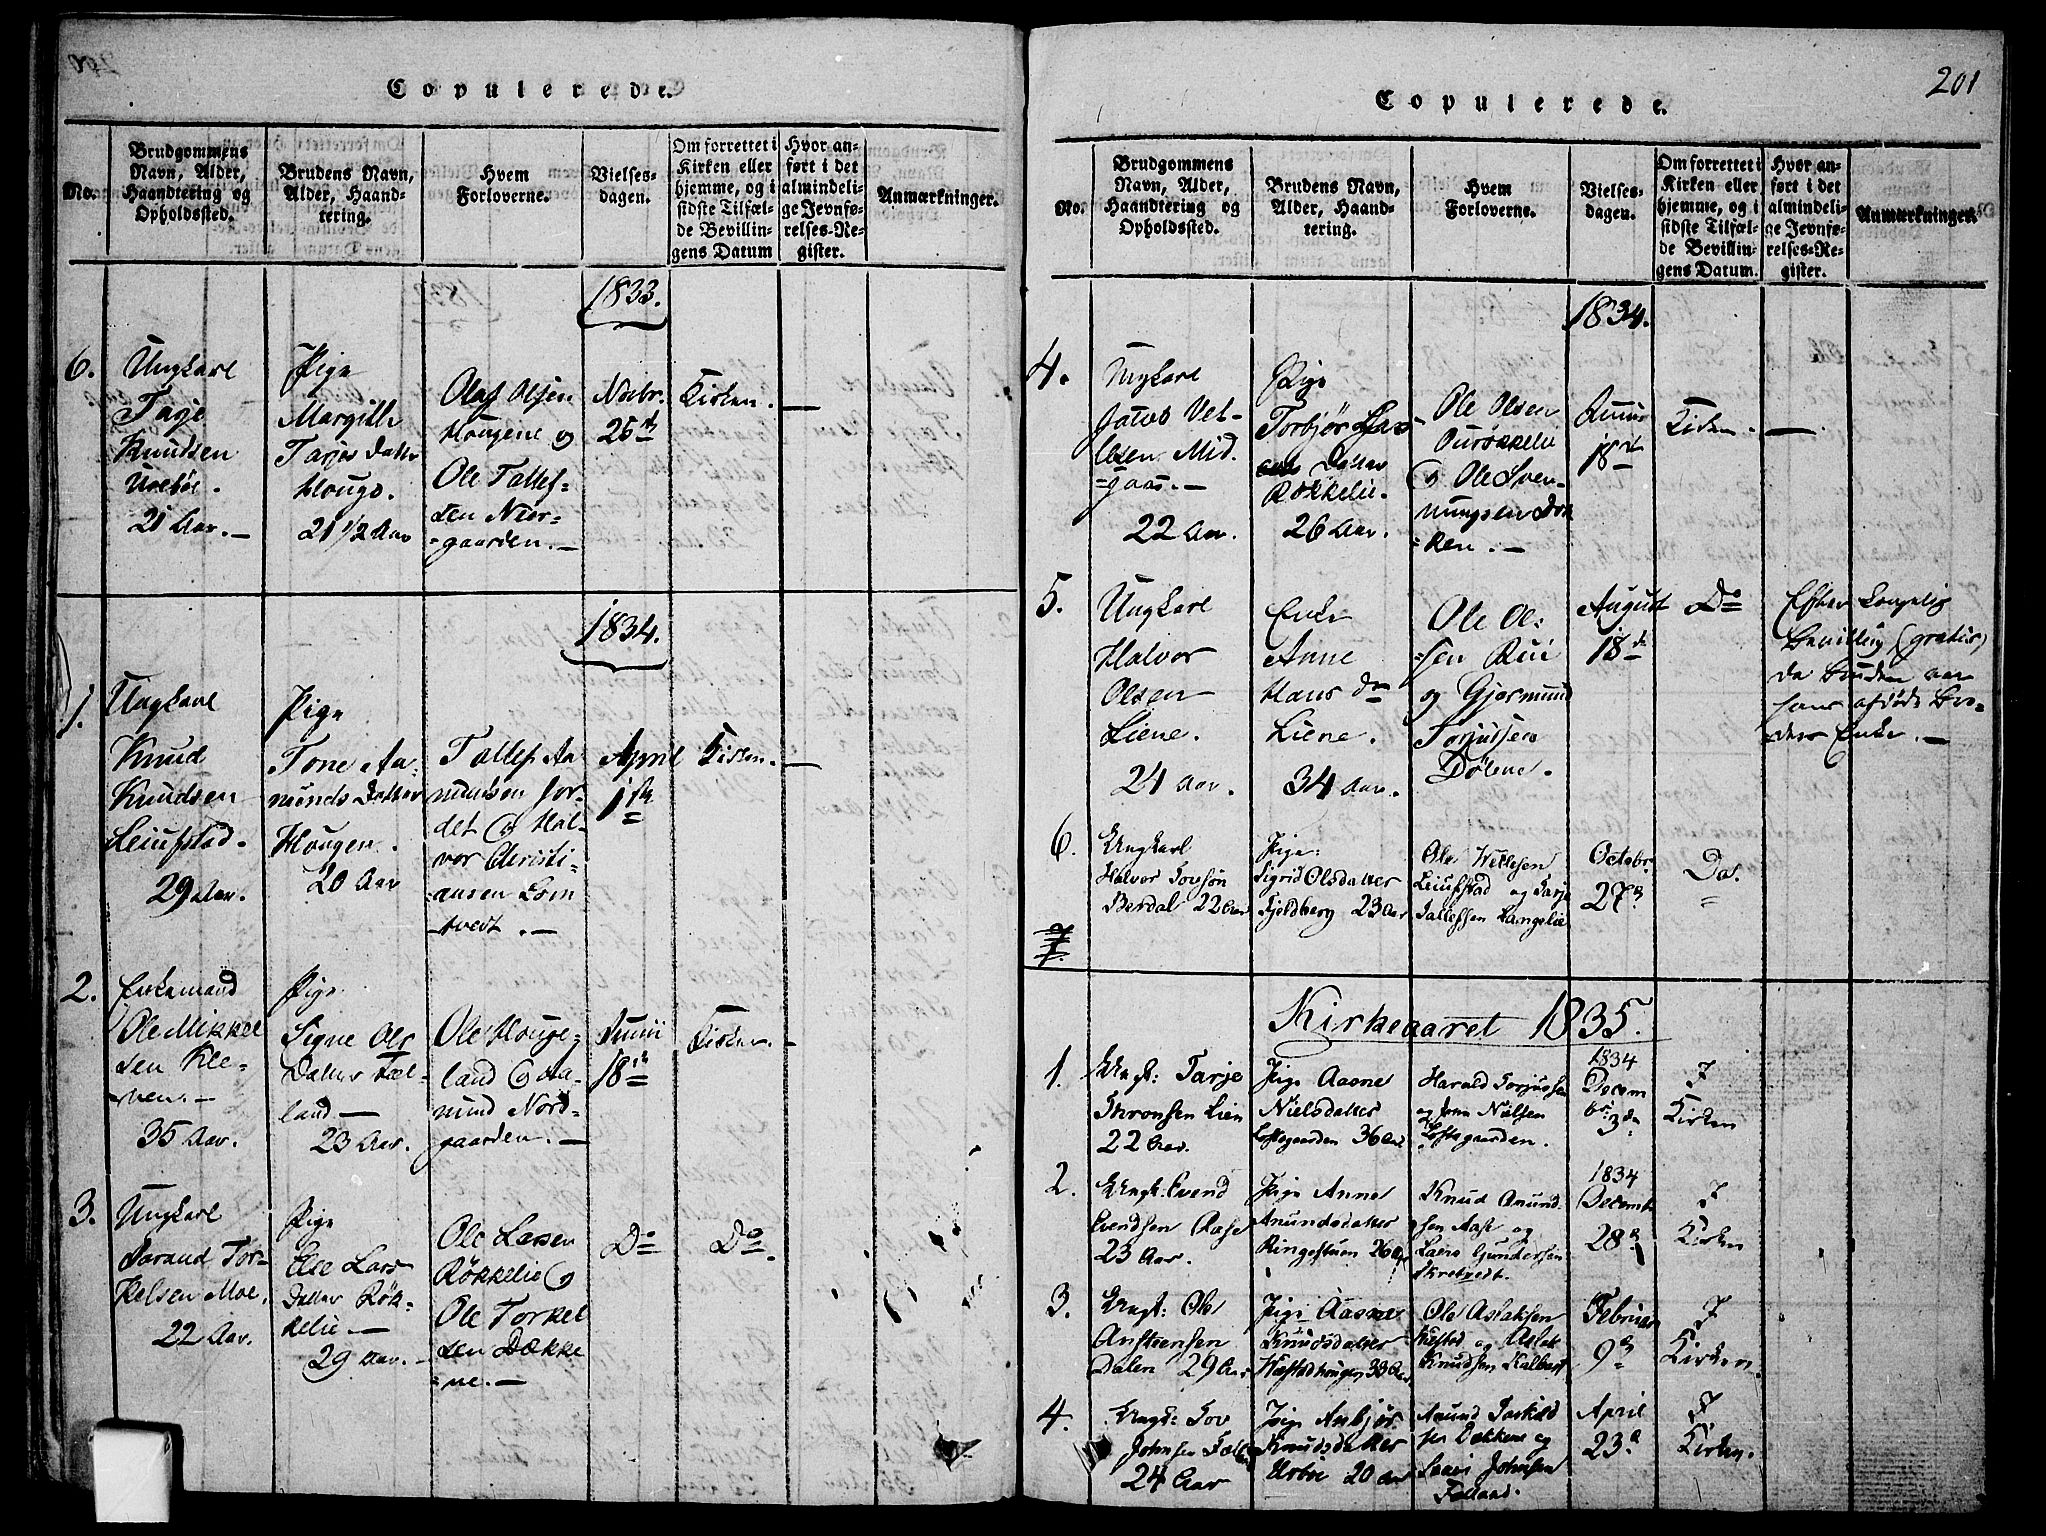 Copulerede.
No.
Brudgommens
Navn, Alder,
Haandtering og
Opholdssted.
Brudens Navn,
Alder, Haand-
tering.
Hvem
Forloverne.
Vielses-
dagen.
Om forrettet i
Kirken eller
hjemme, og i
sidste Tilfæl-
de Bevillin-
gens Datum
Hvor an-
ført i det
almindeli-
ge Jevnfø-
relses-Re-
gister.
Anmærkninger.
1833.
6.
Ungkarl
Tarje
Knudsen
Urebøe.
21 Aar. —
Pige
Margith
Tarjes Datter
Hougo.
21 1/2 Aar
Olaf Olsen
Hougene og
Ole Tallef-
sen Nor-
gaarden. —
Novbr.
25de
Kirken.
—
1834.
1.
Ungkarl
Knud
Knudsen
Leiufstad.
29 Aar.
Pige
Tone Aa-
munds Datter
Hougen.
20 Aar
Tallef Aa
mundsen
det og Hal-
vor Christi-
ansen Lom
tvedt. —
April
1ste
Kirken.
—
2.
Enkemand
Ole Mikkel
sen Kle-
ven. —
35 Aar.
Pige
Signe Ols
Datter Fæl-
land —
23 Aar.
Ole Houge-
land og Aa-
mund Nord-
gaarden. —
Junii
18de
Kirken.
-
3.
Ungkarl
Saraud Tor-
kelsen Moe.
22 Aar.
Pige
Else Lars
Datter Røk-
kelie —
29 Aar. —
Ole Larsen
Røkkelie og
Ole Torkel
sen Dække
ne. —
Do
Do
201
Copulerede.
No.
Brudgommens
Navn, Alder,
Haandtering og
Opholdssted.
Brudens Navn,
Alder, Haand-
tering.
Hvem
Forloverne.
Vielses-
dagen.
Om forrettet i
Kirken eller
hjemme, og i
sidste Tilfæl-
de Bevillin-
gens Datum.
Hvor an-
ført i det
almindeli-
ge Jevnfø-
relses-Re-
gister.
Anmærkninger.
1834.
4.
Ungkarl
Jacob Vet-
lesen Mid-
gaas. —
22 Aar.
Pige
Torbjør Lars
Datter
Røkkelie.
26 Aar.
Ole Olsen
og Ole Sven-
nungsen Dæk
ken. —
Junii
18de
Kirken.
—
5.
Ungkarl
Halvor
Olsen
Liene.
24 Aar.
Enke
Anne
Hans Dtr
Liene.
34 Aar.
Ole Ol-
sen Rui
og Gjermund
Torjussen
Dølene.
August
18de
Do
Efter Kongelig
Bevilling (gratis)
da Bruden var
hans afdøde Bro-
ders Enke. —
6.
Ungkarl
Halvor Tovsøn
Berdal 22 Aar
Pige:
Sigrid Olsdatter
Fjeldberg 23 Aar
Ole Vetlesen
Leiufstad og Tarje
Tallefsen Langelie
Octobr.
27de
Do.
7.
Kirkeaaret 1835.
1.
Ungk: Tarje
Thronsen Lien
22 Aar.
Pige Aasne
Nielsdatter
Loftsgaarden 36 Aar
Harald Torjussen
og Jøns Nielsen
Loftsgaarden.
1834
Decem
br: 3de
I
Kirken
2.
Ungk: Evend
Evendsen Aase
23 Aar.
Pige Anne
Anundsdatter
Ringestuen 26 Aar
Knud Anund
sen Aase og
Laers Gundersen
Skretvedt.
1834
Decemb
28de
I
Kirken
3.
Ungk: Ole
Anstensen
Dalen 29 Aar
Pige Aasne
Knudsdatter
Wæstadhougen 33 Aar
Ole Aslaksen
og Aslak
Knudsen
Februar
9de
I
Kirken.
4.
Ungk: Tov
Johnsen
24 Aar
Pige Anbjør
Knudsdatter
Urbøe 20 Aar
Anund Torkild
sen Dækkene og
Laers Johnsen
April
23de
I
Kirken.